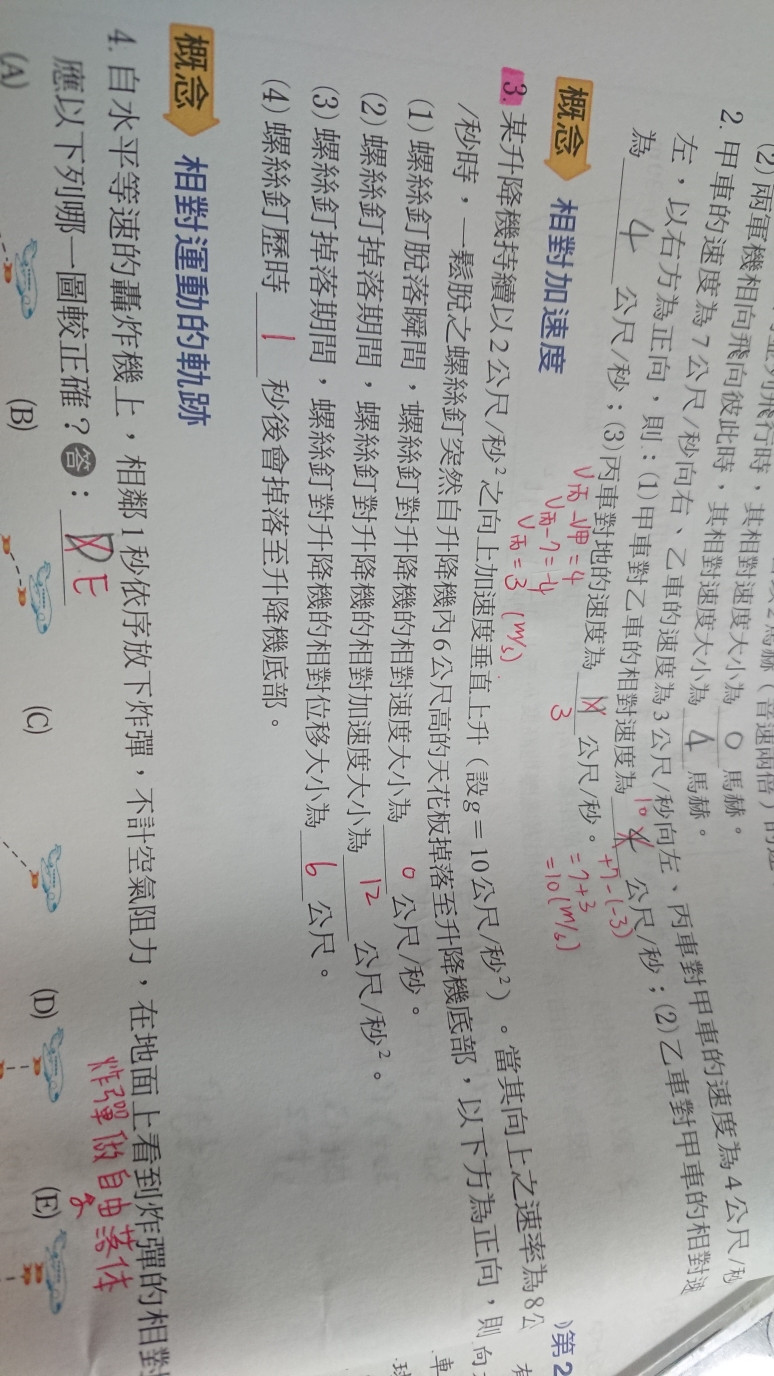 (2) 兩軍機相向飛向彼此時，其相對速度大小為 4 馬赫。
2. 甲車的速度為 7 公尺/秒向右、乙車的速度為 3 公尺/秒向左、丙車對甲車的速度為 4 公尺/秒
左，以右方為正向，則：(1) 甲車對乙車的相對速度為 10 公尺/秒；(2) 乙車對甲車的相對速
為 4 公尺/秒；(3) 丙車對地的速度為 3 公尺/秒。
+7-(-3)
=7+3
=10(m/s)
V丙-V甲=4
V丙-7=-4
V丙=3 (m/s)
概念 相對加速度
3. 某升降機持續以 2 公尺/秒² 之向上加速度垂直上升（設 g＝10 公尺/秒²）。當其向上之速率為 8 公
/秒時，一鬆脫之螺絲釘突然自升降機內 6 公尺高的天花板掉落至升降機底部，以下方為正向，則
(1) 螺絲釘脫落瞬間，螺絲釘對升降機的相對速度大小為 0 公尺/秒。
(2) 螺絲釘掉落期間，螺絲釘對升降機的相對加速度大小為 12 公尺/秒²。
(3) 螺絲釘掉落期間，螺絲釘對升降機的相對位移大小為 6 公尺。
(4) 螺絲釘歷時 1 秒後會掉落至升降機底部。
概念 相對運動的軌跡
4. 自水平等速的轟炸機上，相鄰 1 秒依序放下炸彈，不計空氣阻力，在地面上看到炸彈的相對
應以下列哪一圖較正確？答：E
炸彈做自由落体
(A) (B) (C) (D) (E)
第2